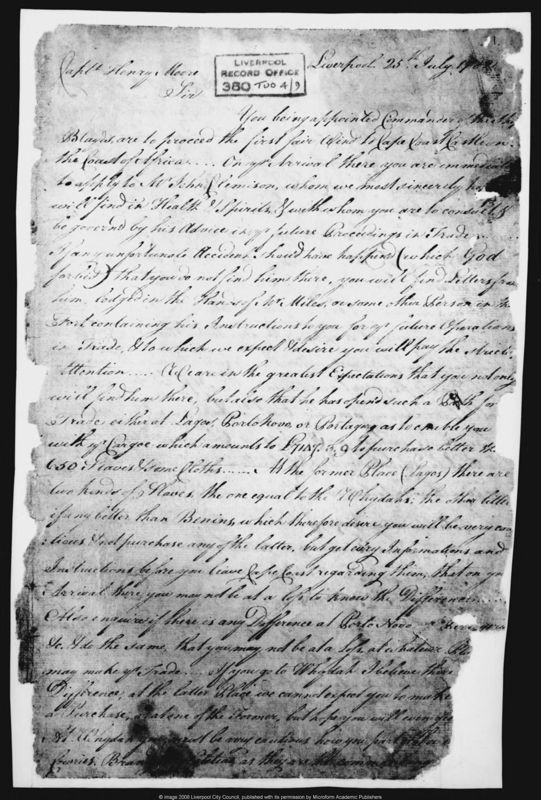 LIVERPOOL
RECORD OFFICE
380 TUO 4/9
Liverpool 25th July
Captn Henry Moore
Sir
You being appointed Commander of the Ship
Blayds, are to proceed the first fair Wind to Cape Coast Castle on
the Coast of Africa On yr Arrival there you are
to apply to Mr John Clemison, whom we most sincerely
will find in Health & Spirits, & with whom you are to consult &
be govern'd by his Advice in yr future Proceedings in Trade
If any unfortunate Accident should have happen'd (which God
forbid) that you do not find him there, you will find Letters from
him, lodged in the Hands of Mr Miles, or some other Person in the
Fort containing his Instructions to you for yr future Operations
in Trade, & to which we expect & desire you will pay the strictest
Attention We are in the greatest Expectations that you not only
will find him there, but also that he has open'd such a Path for
Trade either at Lagos, Porto Novo, or as to enable you
with yr Cargoe which amounts to to purchase better than
650 Slaves & some Cloths At the former Place (Lagos) there are
two kinds of Slaves, the one equal to the Whydahs, the other little
if any better than Benins, which therefore desire you will be very cau
tious & not purchase any of the latter, but get every Information and
Instructions before you leave Cape Coast regarding them, that on yr
Arrival there, you may not be at a loss to know the Difference
Also enquire if there is any Difference at Porto Novo
& do the same, that you may not be at a loss at whatever
may make yr Trade If you go to Whydah I believe there
Difference, at the latter Place we cannot expect you to make
a Purchase, as at one of the Former, but hope you will
At Whydah you must be very cautious how you part
Cowries, Brandy as they are all commanding
© image 2008 Liverpool City Council, published with its permission by Microform Academic Publishers